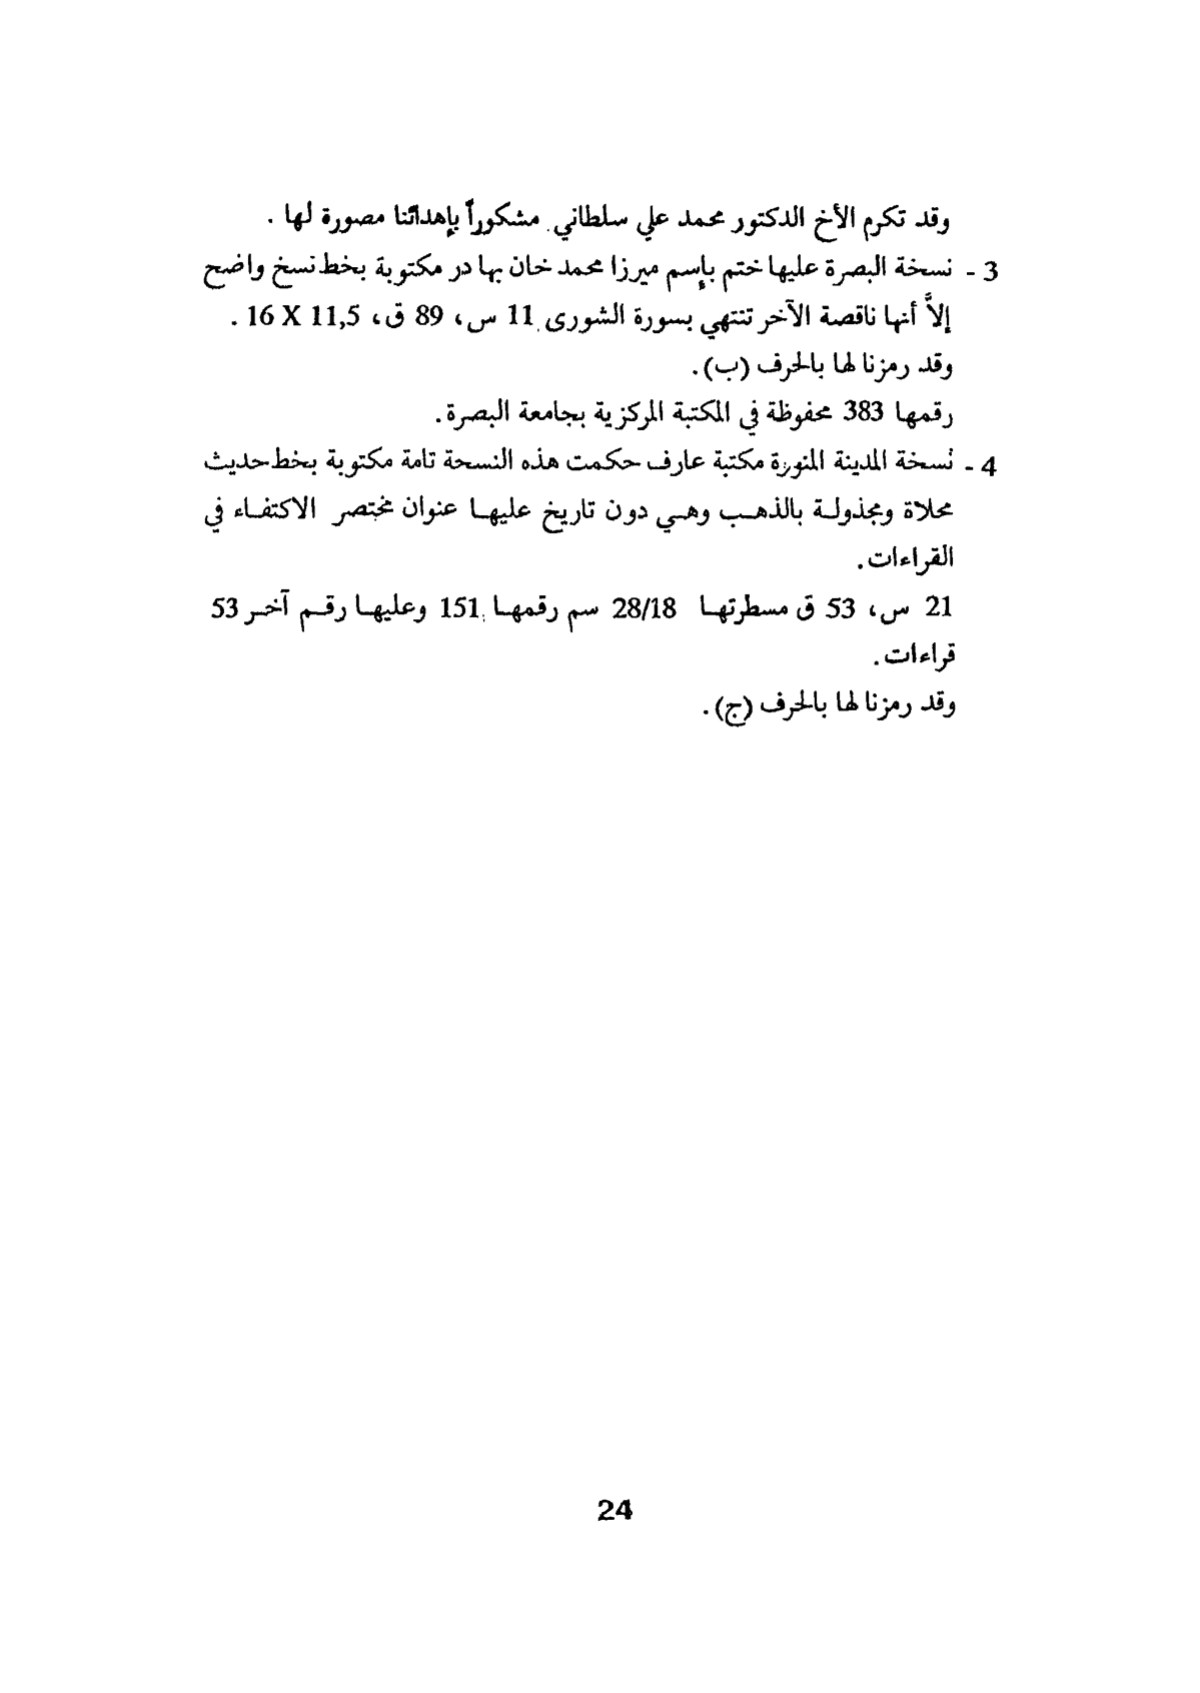 وقد تكرم الأخ الدكتور محمد علي سلطاني مشكوراً بإهدائنا مصورة لها .
3 - نسخة البصرة عليها ختم بإسم ميرزا محمد خان بها در مكتوبة بخط نسخ واضح
إلاَّ أنها ناقصة الآخر تنتهي بسورة الشورى 11 س، 89 ق، 11,5 X 16 .
وقد رمزنا لها بالحرف (ب).
رقمها 383 محفوظة في المكتبة المركزية بجامعة البصرة.
4 - نسخة المدينة المنورة مكتبة عارف حكمت هذه النسحة تامة مكتوبة بخط حديث
محلاة ومجذولـة بالذهـب وهـي دون تاريخ عليهـا عنوان مختصر الاكتفـاء في
القراءات.
21 س، 53 ق مسطرتهـا 28/18 سم رقمهـا 151 وعليهـا رقـم آخـر 53
قراءات.
وقد رمزنا لها بالحرف (ج).
24